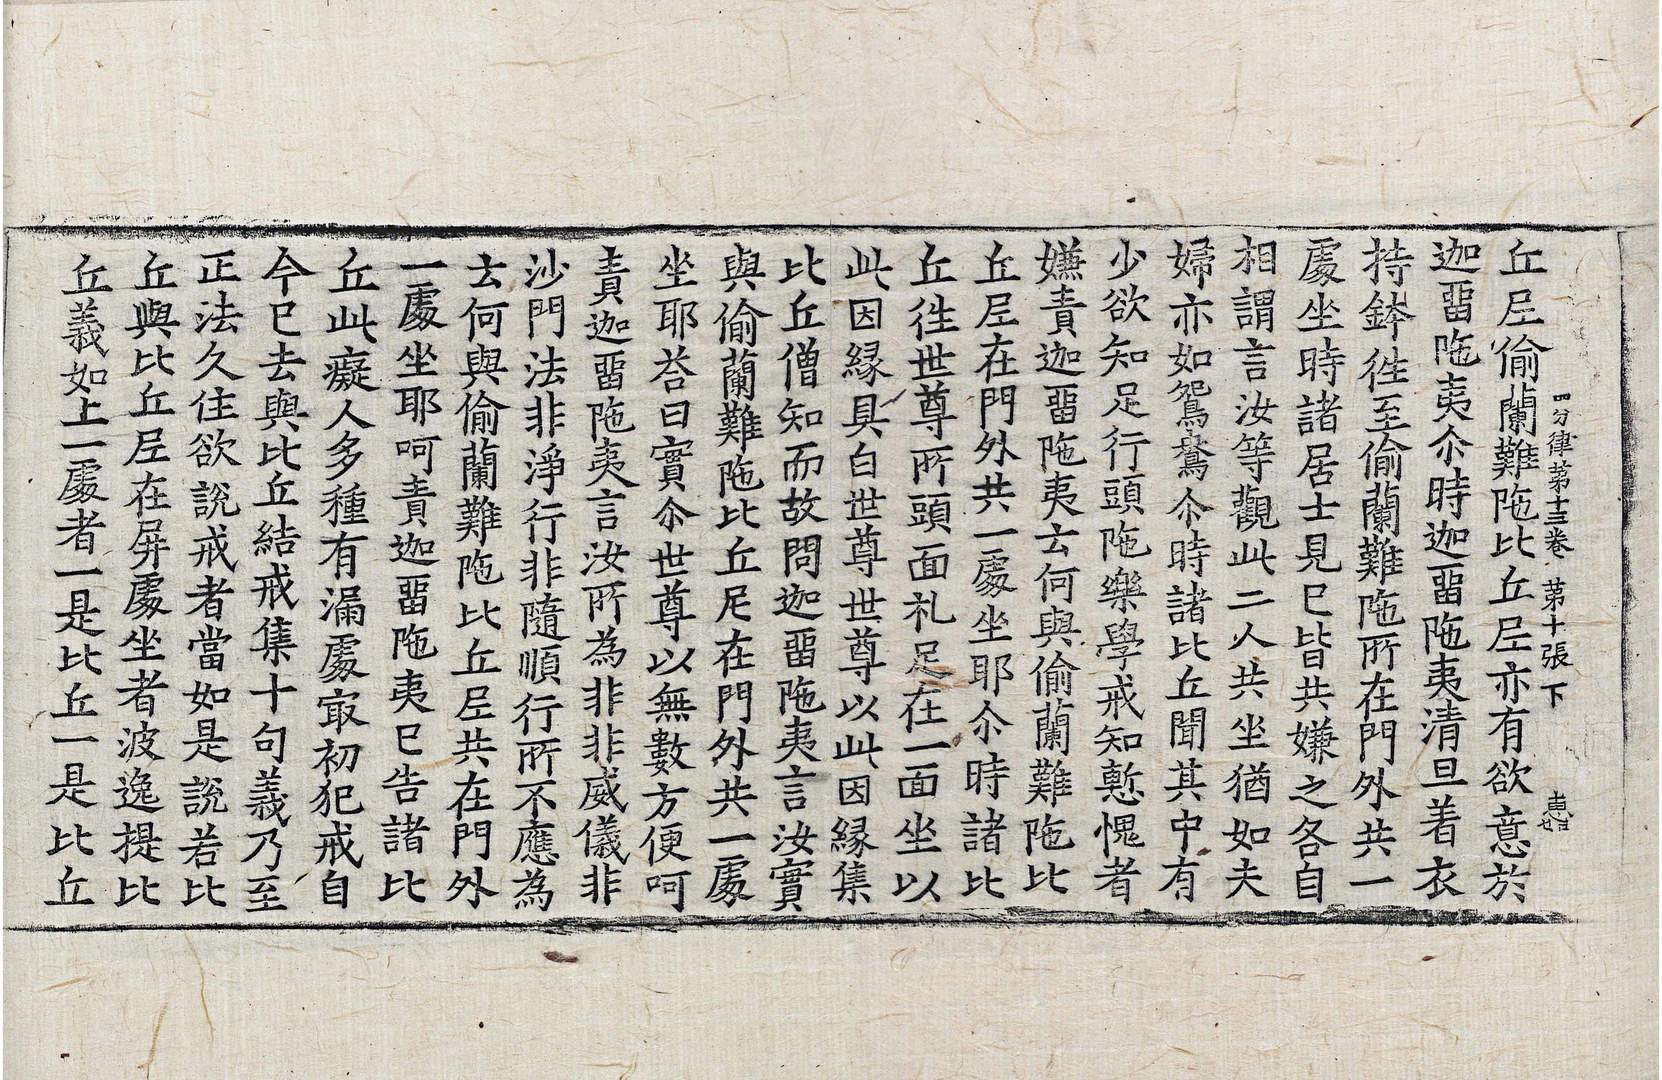 四分律第十三卷 第十張 下
丘尼偷蘭難陁比丘尼亦有欲意於
迦留陁夷尒時迦留陁夷清旦著衣
持鉢徃至偷蘭難陁所在門外共一
處坐時諸居士見已皆共嫌之各自
相謂言汝等觀此二人共坐猶如夫
婦亦如鴛鴦尒時諸比丘聞其中有
少欲知足行頭陁樂學戒知慙愧者
嫌責迦留陁夷云何與偷蘭難陁比
丘尼在門外共一處坐耶尒時諸比
丘徃世尊所頭面礼足在一面坐以
此因緣具白世尊世尊以此因緣集
比丘僧知而故問迦留陁夷言汝實
與偷蘭難陁比丘尼在門外共一處
坐耶荅曰實尒世尊以無數方便呵
責迦留陁夷言汝所為非非威儀非
沙門法非淨行非隨順行所不應為
云何與偷蘭難陁比丘尼共在門外
一處坐耶呵責迦留陁夷已告諸比
丘此癡人多種有漏處㝡初犯戒自
今已去與比丘結戒集十句義乃至
正法久住欲說戒者當如是說若比
丘與比丘尼在屏處坐者波逸提比
丘義如上一處者一是比丘一是比丘